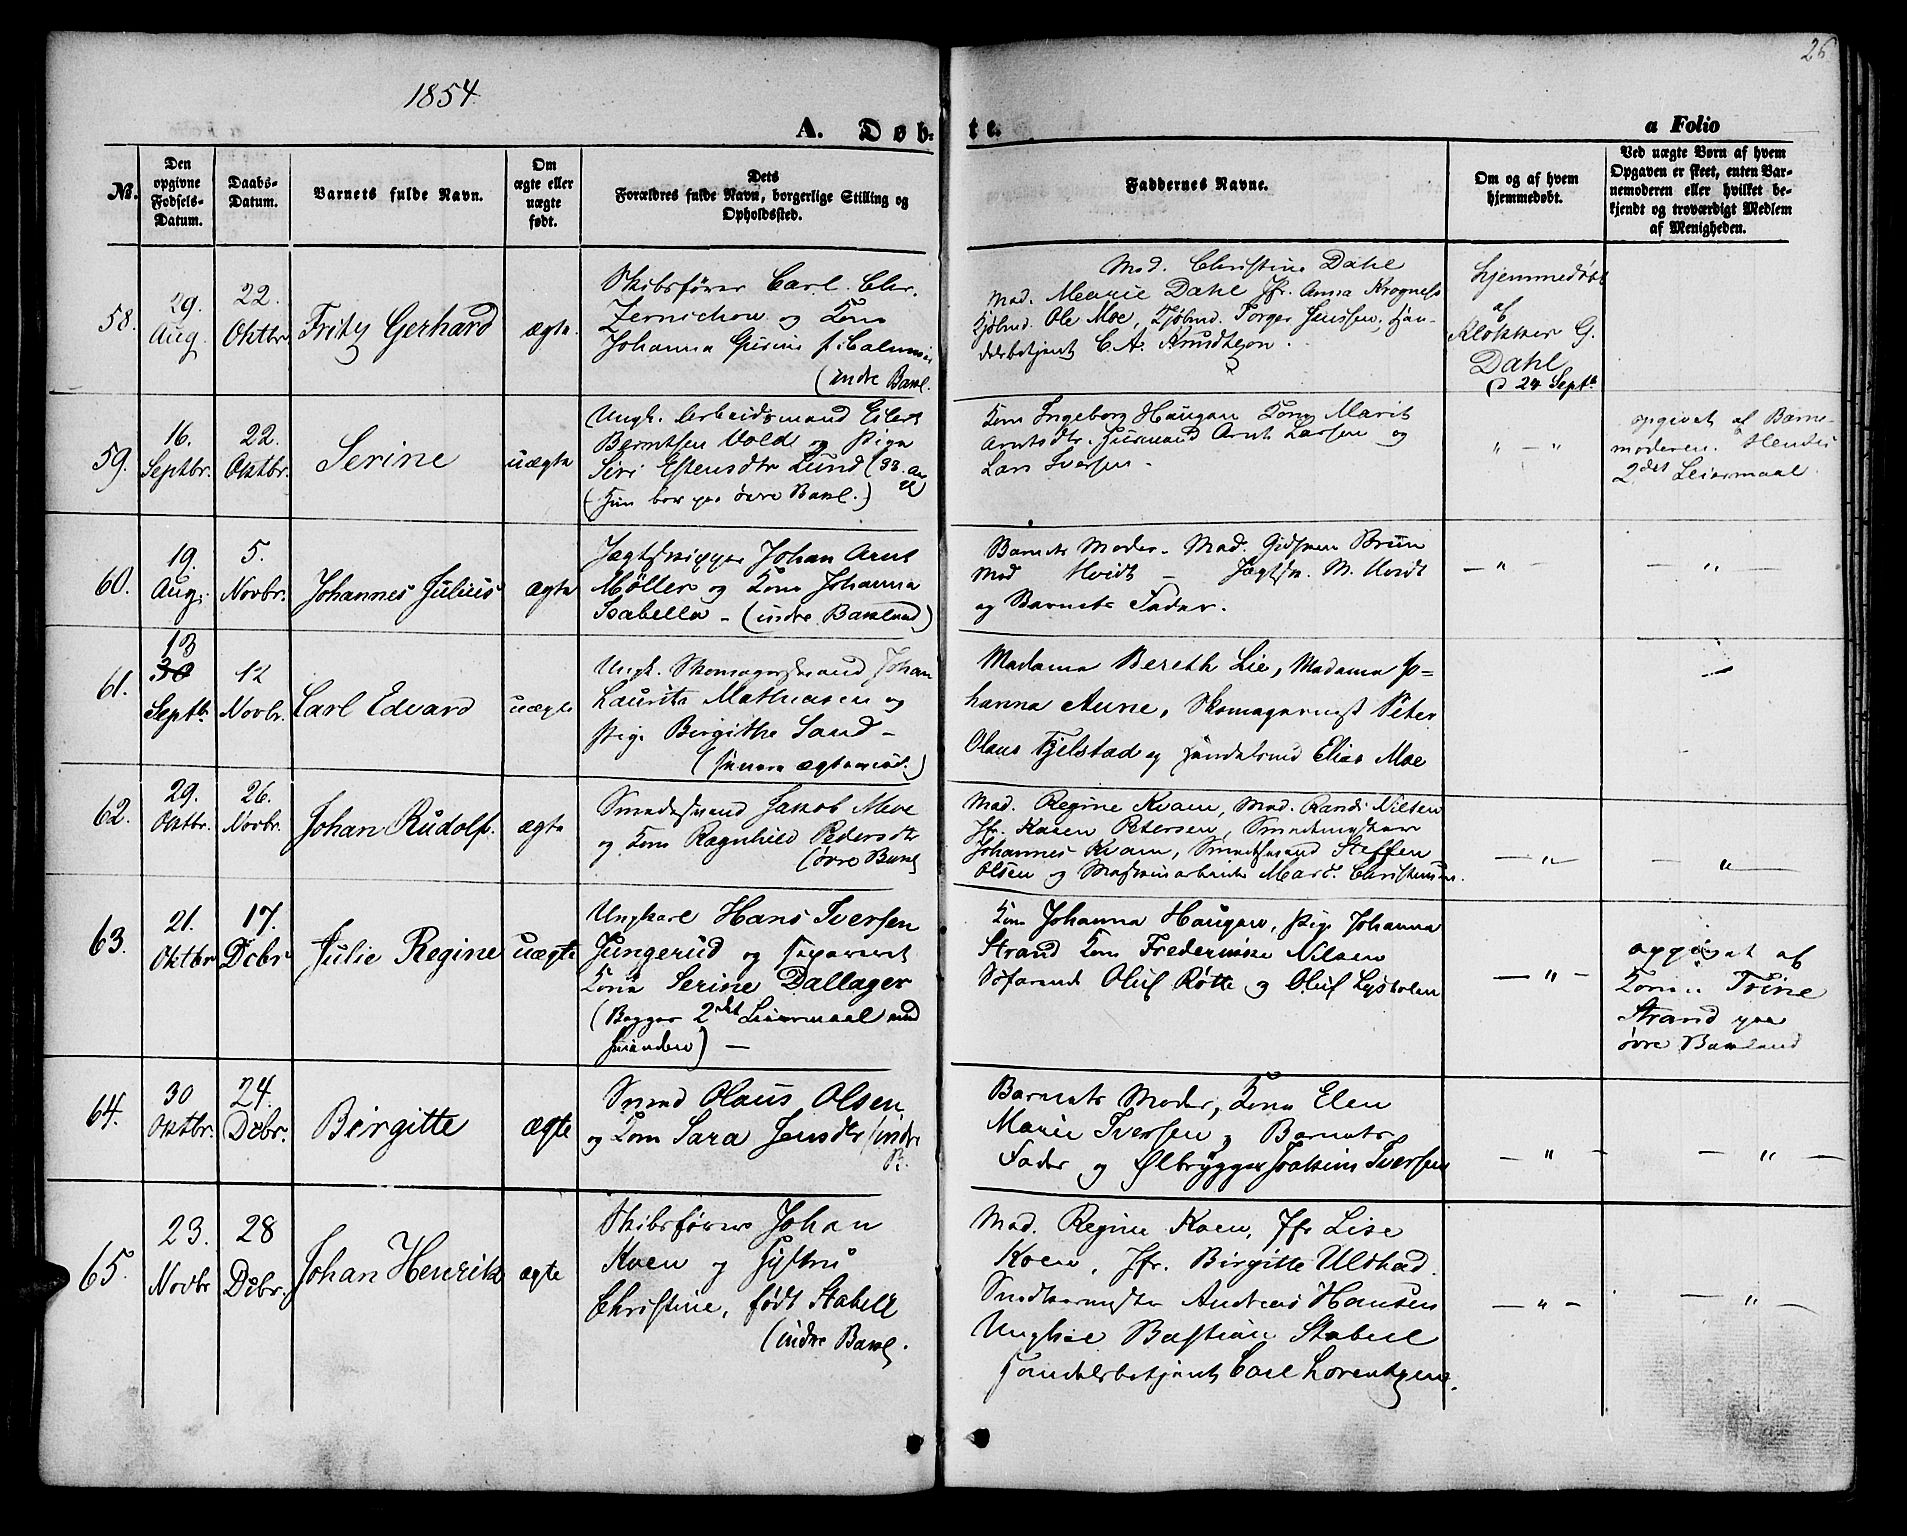 26
1854
A. Døb-
te.
a Folio
No.
Den
opgivne
Fødsels-
Datum.
Daabs-
Datum.
Barnets fulde Navn.
Om
ægte eller
uægte
født.
Dets
Forældres fulde Navn, borgerlige Stilling og
Opholdssted.
Faddernes Navne.
Om og af hvem
hjemmedøbt.
Ved uægte Børn af hvem
Opgaven er skeet, enten Bar-
nemoderen eller hvilket be-
kjendt og troværdigt Medlem
af Menigheden.
58.
29.
Aug.
22.
Oktbr
Fritz Gerhard
ægte
Skibsfører Carl Chr.
og Kone
Johanna
(indre Bakl.
Mad. Christine Dahl
Mad. Marie Dahl Jfr. Anna Krogness
Kjøbmd. Ole Moe, Kjøbmd. Torger Jenssen, Han-
delsbetjent C. A. Knudtzon.
hjemmedøbt
af
Klokker G.
Dahl
d 24 Septb.
59.
16.
Septbr.
22.
Oktbr.
Serine
uægte
Ungk. Arbeidsmand Eilert
Berntsen Vold og Pige
Siri Estensdtr Lund (33. Aar
(Hun bor paa øvre Bakl.)
Kone Ingeborg Haugan Kone Marit
Arntsdtr. Huusmand Arnt Larsen og
Lars Iversen -
" - "
opgivet af Barne-
moderen. Hendes
2det Leiermaal
60.
19.
Aug.
5.
Novbr.
Johannes Julius
ægte
Jægtskipper Johan Arnt
Møller og Kone Johanna
Isabella - (indre Bakland)
Barnets Moder - Mad. Brun
Mad Hvidt - Jægtsk. M. Hvidt
og Barnets Fader.
- " -
- " -
61.
13
30
Septb.
12
Novbr.
Carl Edvard
uægte
Ungk. Skomagersvend Johan
Laurits Mathiasen og
Pige Birgithe Sand -
(senere ægteviet.)
Madame Bereth Lie, Madame Jo-
hanna Aune, Skomagermest Peter
Olaus Fjelstad og Handelsmd Elias Moe
62.
29.
Oktbr.
26.
Novbr.
Johan Rudolf.
ægte
Smedesvend Jakob Moe
og Kone Ragnhild Pedersdtr
(øvre Bakl)
Mad. Regine Kvam, Mad. Randi Nilsen
Jfr. Karen Petersen, Smedmester
Johannes Kvam, Smedsvend Steffen
Olsen og Maskinarbeider Mart. Christensen.
- " -
- " -
63.
21.
Oktbr
17.
Dcbr
Julie Regine
uægte
Ungkarl Hans Iversen
Jungerud og separeret
Kone Serine Dallager
(Begges 2det Leiermaal med
hinanden) -
Kone Johanna Haugan, Pige Johanna
Strand Kone Frederikke Nilsen
Søfarende Oluf Røtte og Oluf Lysholm
- " -
opgivet af
Kone Trine
Strand paa
øvre Bakland
64.
30
Oktbr.
24.
Dcbr.
Birgitte
ægte
Smed Olaus Olsen
og Kone Sara Jensdtr (indre
B.
Barnets Moder, Kone Elen
Marie Iversen, Barnets
Fader og Ølbrygger Joakim Iversen
- " -
- " -
65.
23.
Novbr
28
Dcbr.
Johan Henrik
ægte
Skibsfører Johan
Koen og Hustru
Christine, født Stabell
(indre Bakl.
Mad. Regine Koen, Jfr Lise
Koen, Jfr. Birgitte Ulstad
Snedkermester Andreas Hansen
Ungkar Bastian Stabell
Handelsbetjent Carl Lorentzen.
- " -
- " -